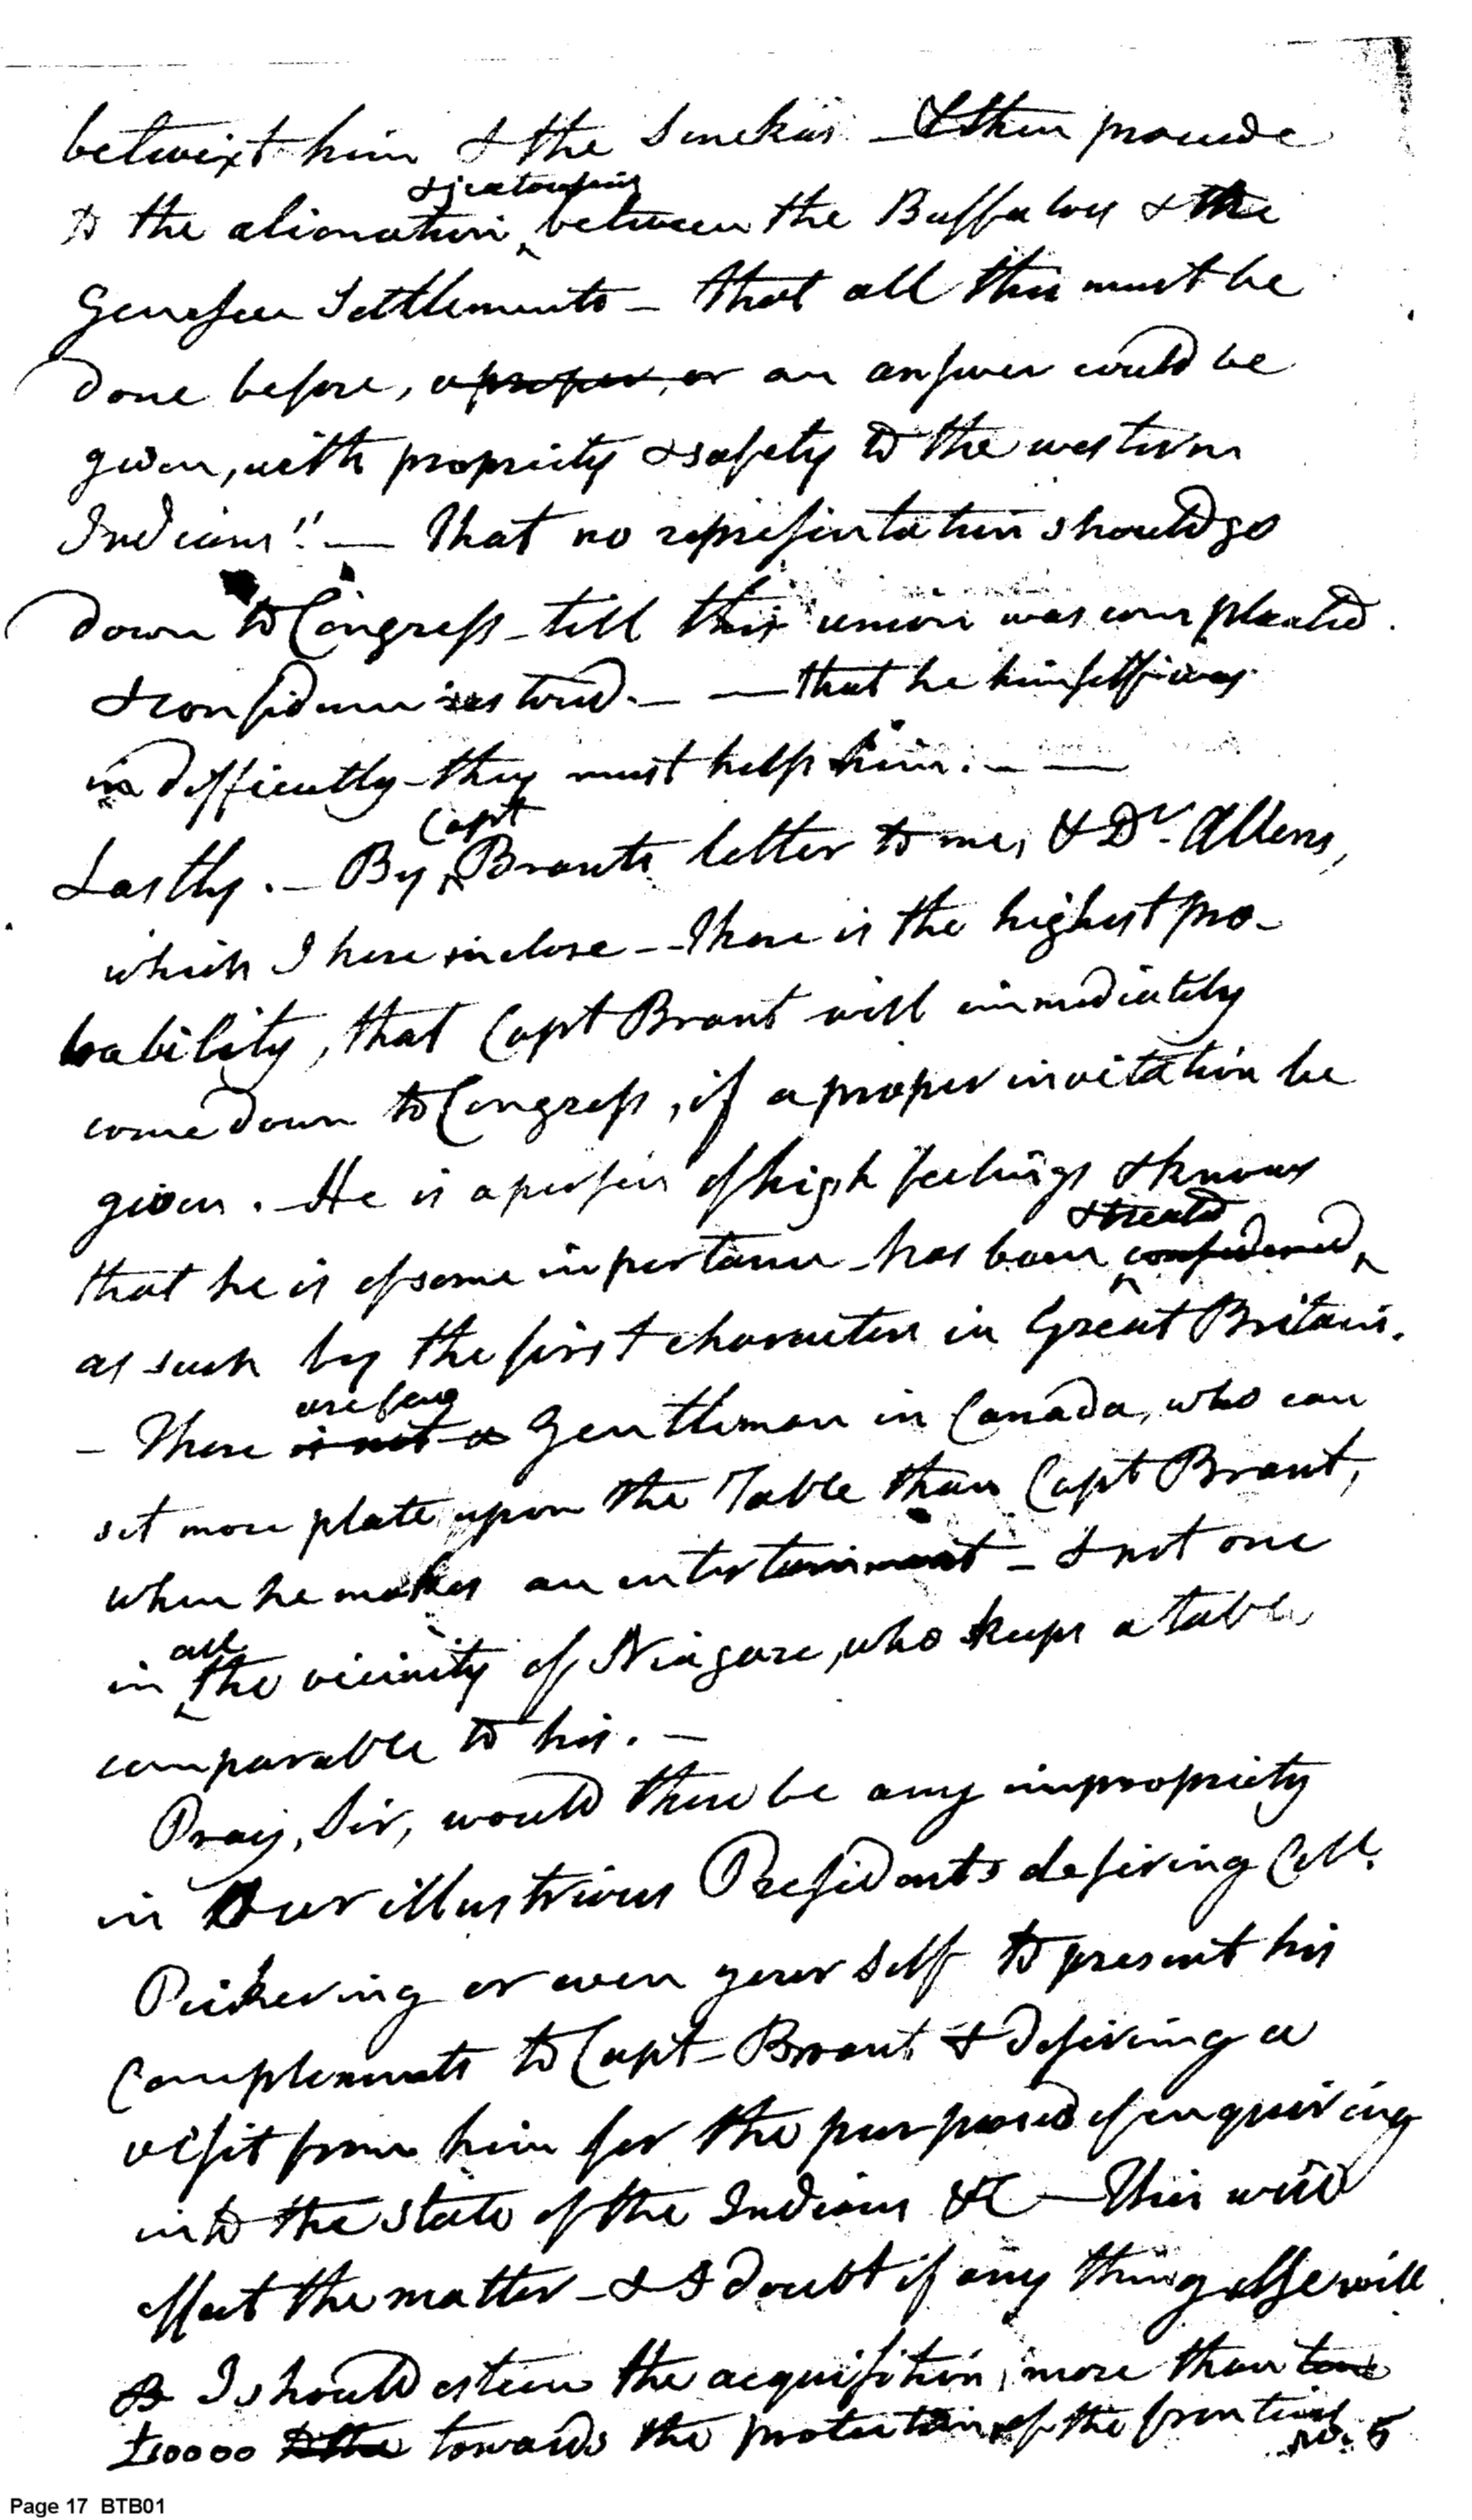 betwixt him & the Senekas - & then procede
to the alienation & jealousies between the Buffaloes & the
Genesee Settlements - That all this must be
done before, a proper, or an answer could be
given, with propriety & safety to the western
Indians!! — That no representation should go
down to Congress - till this union was compleated.
& confidence restored. — — that he himself was
in difficulty - they must help him. — —
Lastly. - By Capt Brants letter to me, & Dr. Allens,
which I here inclose - There is the highest pro-
bability, that Capt Brant will immediately
come down to Congress, if a proper invitation be
given. - He is a person of high feelings & knows
that he is of some importance - has been considered, & treated
as such by the first characters in Great Britain.
- There is not a are few Gentleman in Canada, who can
set more plate upon the Table than Capt Brant,
when he makes an entertainment - & not one
in all the vicinity of Niagara, who keeps a table
comparable to his. -
Pray, Sir, would there be any impropriety
in Our illustrious Presidents desiring Coll.
Pickering or even your self to present his
Complements to Capt - Brant & desiring a
visit from him for the purposes of enquiring
into the state of the Indians &c - This will
effect the matter - & I doubt if any thing else will.
I should esteem the acquisition, more than
£10000 towards the protection of the frontiers
No. 5
Page 17 BTB01